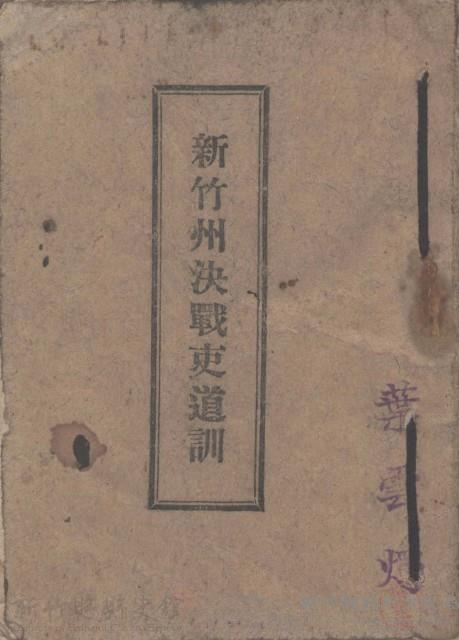 新竹州決戰吏道訓
葉雲
新竹縣縣史館